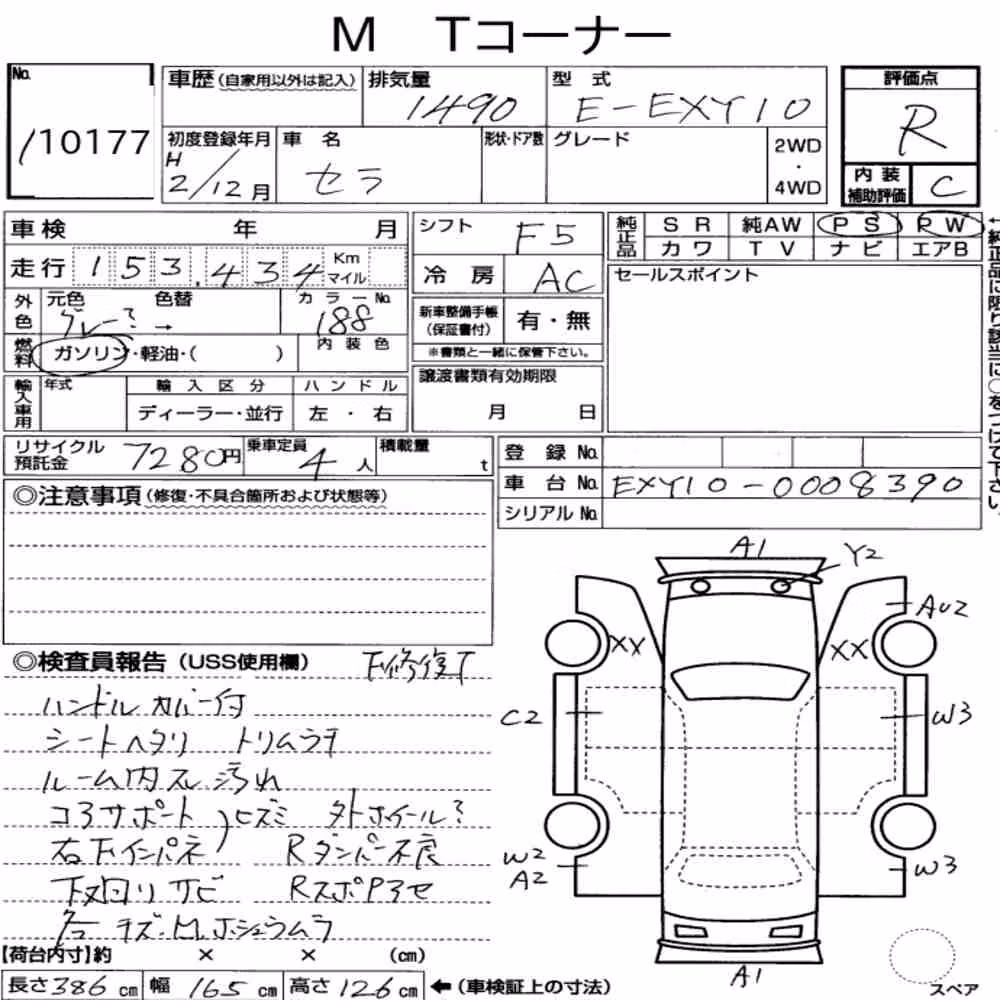 M Tコーナー
No. 110177
車歴(自家用以外は記入) 排気量 1490 型式 E-EXY10 評価点 R
初度登録年月 H2/12月 車名 セラ 形状・ドア数 グレード 2WD・4WD 内装補助評価 C
車検 年 月 シフト F5 純正品 SR 純AW PS PW
カワ TV ナビ エアB
走行 153,434 Km マイル 冷房 AC セールスポイント
←純正品に限り該当に○をつけて下さい。
外色 元色 グレー? 色替 → カラーNo. 188 新車整備手帳(保証書付) 有・無
燃料 ガソリン・軽油・( ) 内装色 ※書類と一緒に保管下さい。
輸入車用 年式 輸入区分 ハンドル 譲渡書類有効期限
ディーラー・並行 左・右 月 日
リサイクル預託金 7280円 乗車定員 4人 積載量 t 登録No.
車台No. EXY10-0008390
シリアルNo.
◎注意事項(修復・不具合箇所および状態等)
A1
Y2
AU2
XX XX
C2 W3
W2
A2 W3
A1
スペア
◎検査員報告(USS使用欄) 下修復T
ハンドルカバー付
シートヘタリ トリムラチ
ルーム内スレ汚れ
コアサポート ヒズミ 外ホイール?
右下インパネ Rダンパー不良
下廻りサビ Rスポ
各キズ・凹、ホシュウムラ
【荷台内寸】約 × × (cm)
長さ386cm 幅165cm 高さ126cm ←(車検証上の寸法)